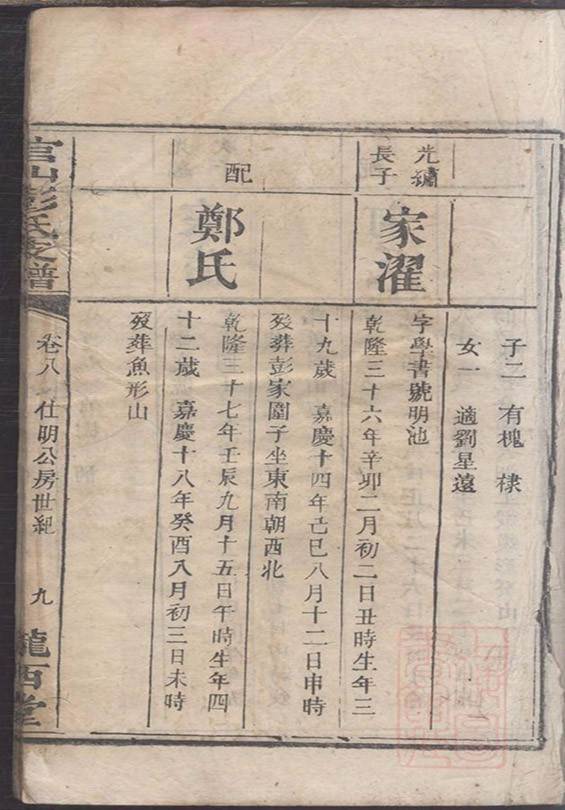 子二 有槐 棣
女一 適劉星遠
光繡
長子
家濯
字學書號明池
乾隆三十六年辛卯二月初二日丑時生年三
十九歲 嘉慶十四年己巳八月十二日申時
歿葬彭家園子坐東南朝西北
配
鄭氏
乾隆三十七年壬辰九月十五日午時生年四
十二歲 嘉慶十八年癸酉八月初三日未時
歿葬魚形山
官山彭氏支譜
卷八 仕明公房世紀
九
隴西堂